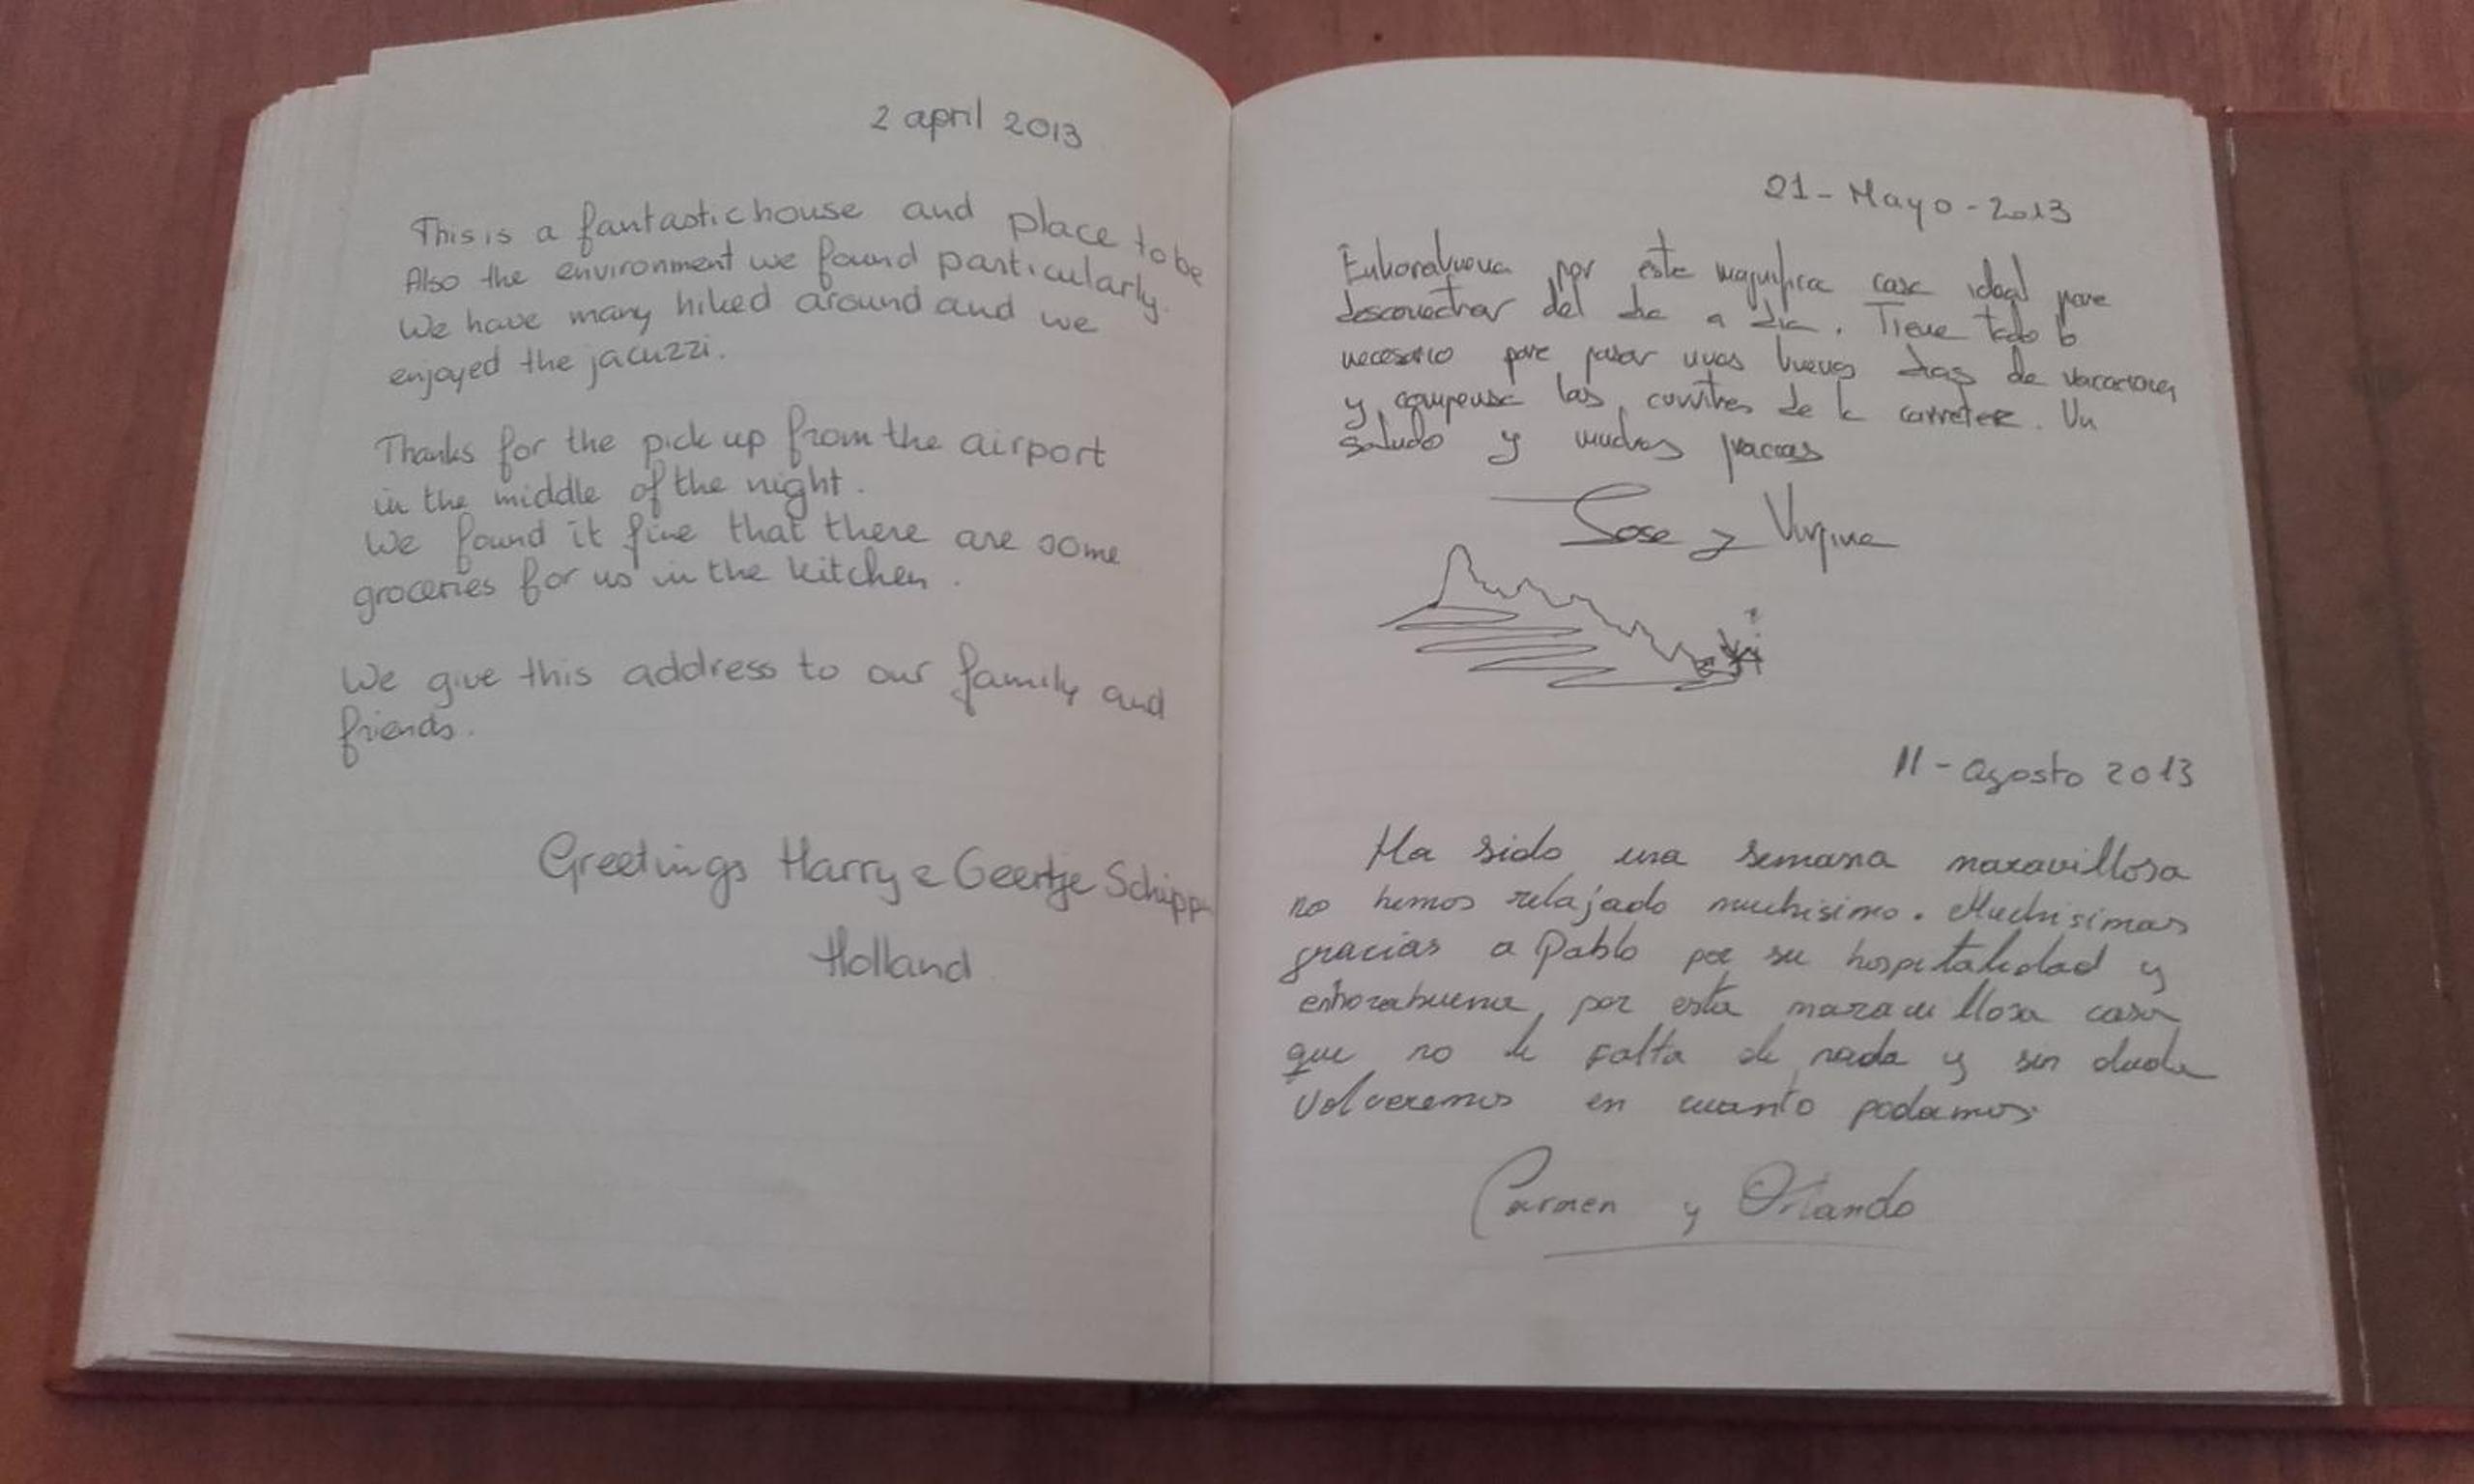 2 april 2013
This is a fantastic house and place to be
Also the environment we found particularly.
We have many hiked around and we
enjoyed the jacuzzi.
Thanks for the pick up from the airport
in the middle of the night.
We found it fine that there are some
groceries for us in the kitchen.
We give this address to our family and
friends.
Greetings Harry & Geertje Schipp
Holland
21-Mayo-2013
Enhorabuena por este magnifica casa ideal para
desconectar del dia a dia. Tiene todo lo
necesario para pasar unos buenos dias de vacaciones
y compensa las de la carretera. Un
saludo y muchas gracias
Jose y Virginia
11-agosto 2013
Ha sido una semana maravillosa
no hemos relajado muchisimo. Muchisimas
gracias a Pablo por su hospitalidad y
enhorabuena por esta maravillosa casa
que no le falta de nada y sin duda
volveremos en cuanto podamos
Carmen y Orlando